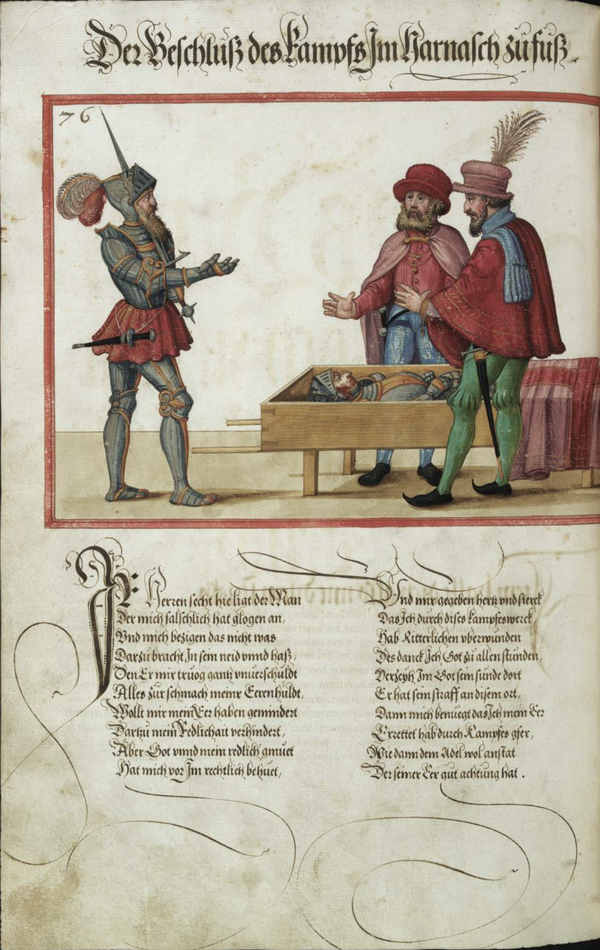 Der Beschluß des Kampfs Im Harnasch zu fuß.
76
Ir Herren secht hie ligt der Man
Der mich falschlich hat glogen an,
Vnd mich bezigen das nicht was
Darzu bracht In sein neid vnnd haß,
Den Er mir truog gantz vnuerschuldt
Alles zur schmach meinr Eerenhuldt,
Wollt mir mein Eer haben gemindert
Dartzu mein Redlichait verhindert,
Aber Got vnnd mein redlich gmuet
Hat mich vor Im rechtlich behuet,
Vnd mir gegeben hertz vnd sterck
Das Ich durch dises kampfs werck
Hab Ritterlichen vberwunden
Des danck Ich Got zu allen stunden,
Verzeych Im Got sein sünde dort
Er hat sein straff an disem ort,
Dann mich benuegt das Ich mein Eer
Errettet hab durch Kampfes gfer,
Wie dann dem Adel wol anstat
Der seiner Eer gut achtung hat.